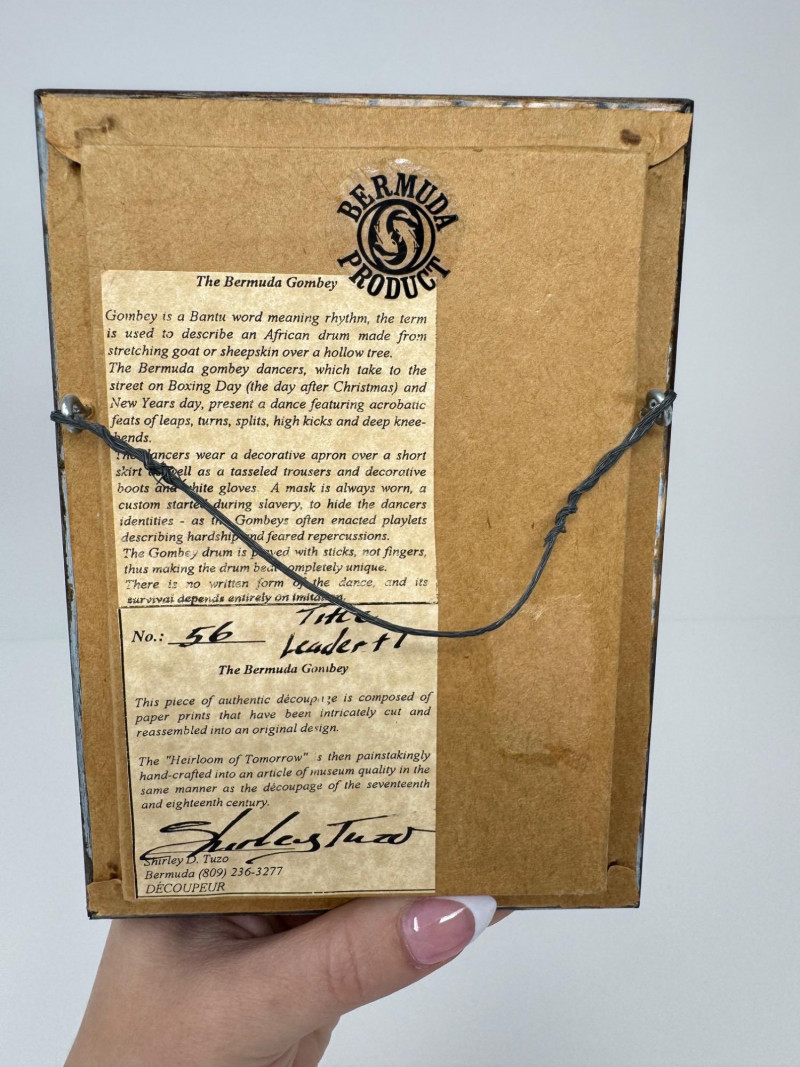 BERMUDA
PRODUCT
The Bermuda Gombey
Gombey is a Bantu word meaning rhythm, the term
is used to describe an African drum made from
stretching goat or sheepskin over a hollow tree.
The Bermuda gombey dancers, which take to the
street on Boxing Day (the day after Christmas) and
New Years day, present a dance featuring acrobatic
feats of leaps, turns, splits, high kicks and deep knee-
bends.
The dancers wear a decorative apron over a short
skirt as well as a tasseled trousers and decorative
boots and white gloves. A mask is always worn, a
custom started during slavery, to hide the dancers
identities - as the Gombeys often enacted playlets
describing hardship and feared repercussions.
The Gombey drum is played with sticks, not fingers,
thus making the drum beat completely unique.
There is no written form of the dance, and its
survival depends entirely on imitation.
No.: 56 Title
Leader #1
The Bermuda Gombey
This piece of authentic découpage is composed of
paper prints that have been intricately cut and
reassembled into an original design.
The "Heirloom of Tomorrow" is then painstakingly
hand-crafted into an article of museum quality in the
same manner as the découpage of the seventeenth
and eighteenth century.
Shirley Tuzo
Shirley D. Tuzo
Bermuda (809) 236-3277
DÉCOUPEUR